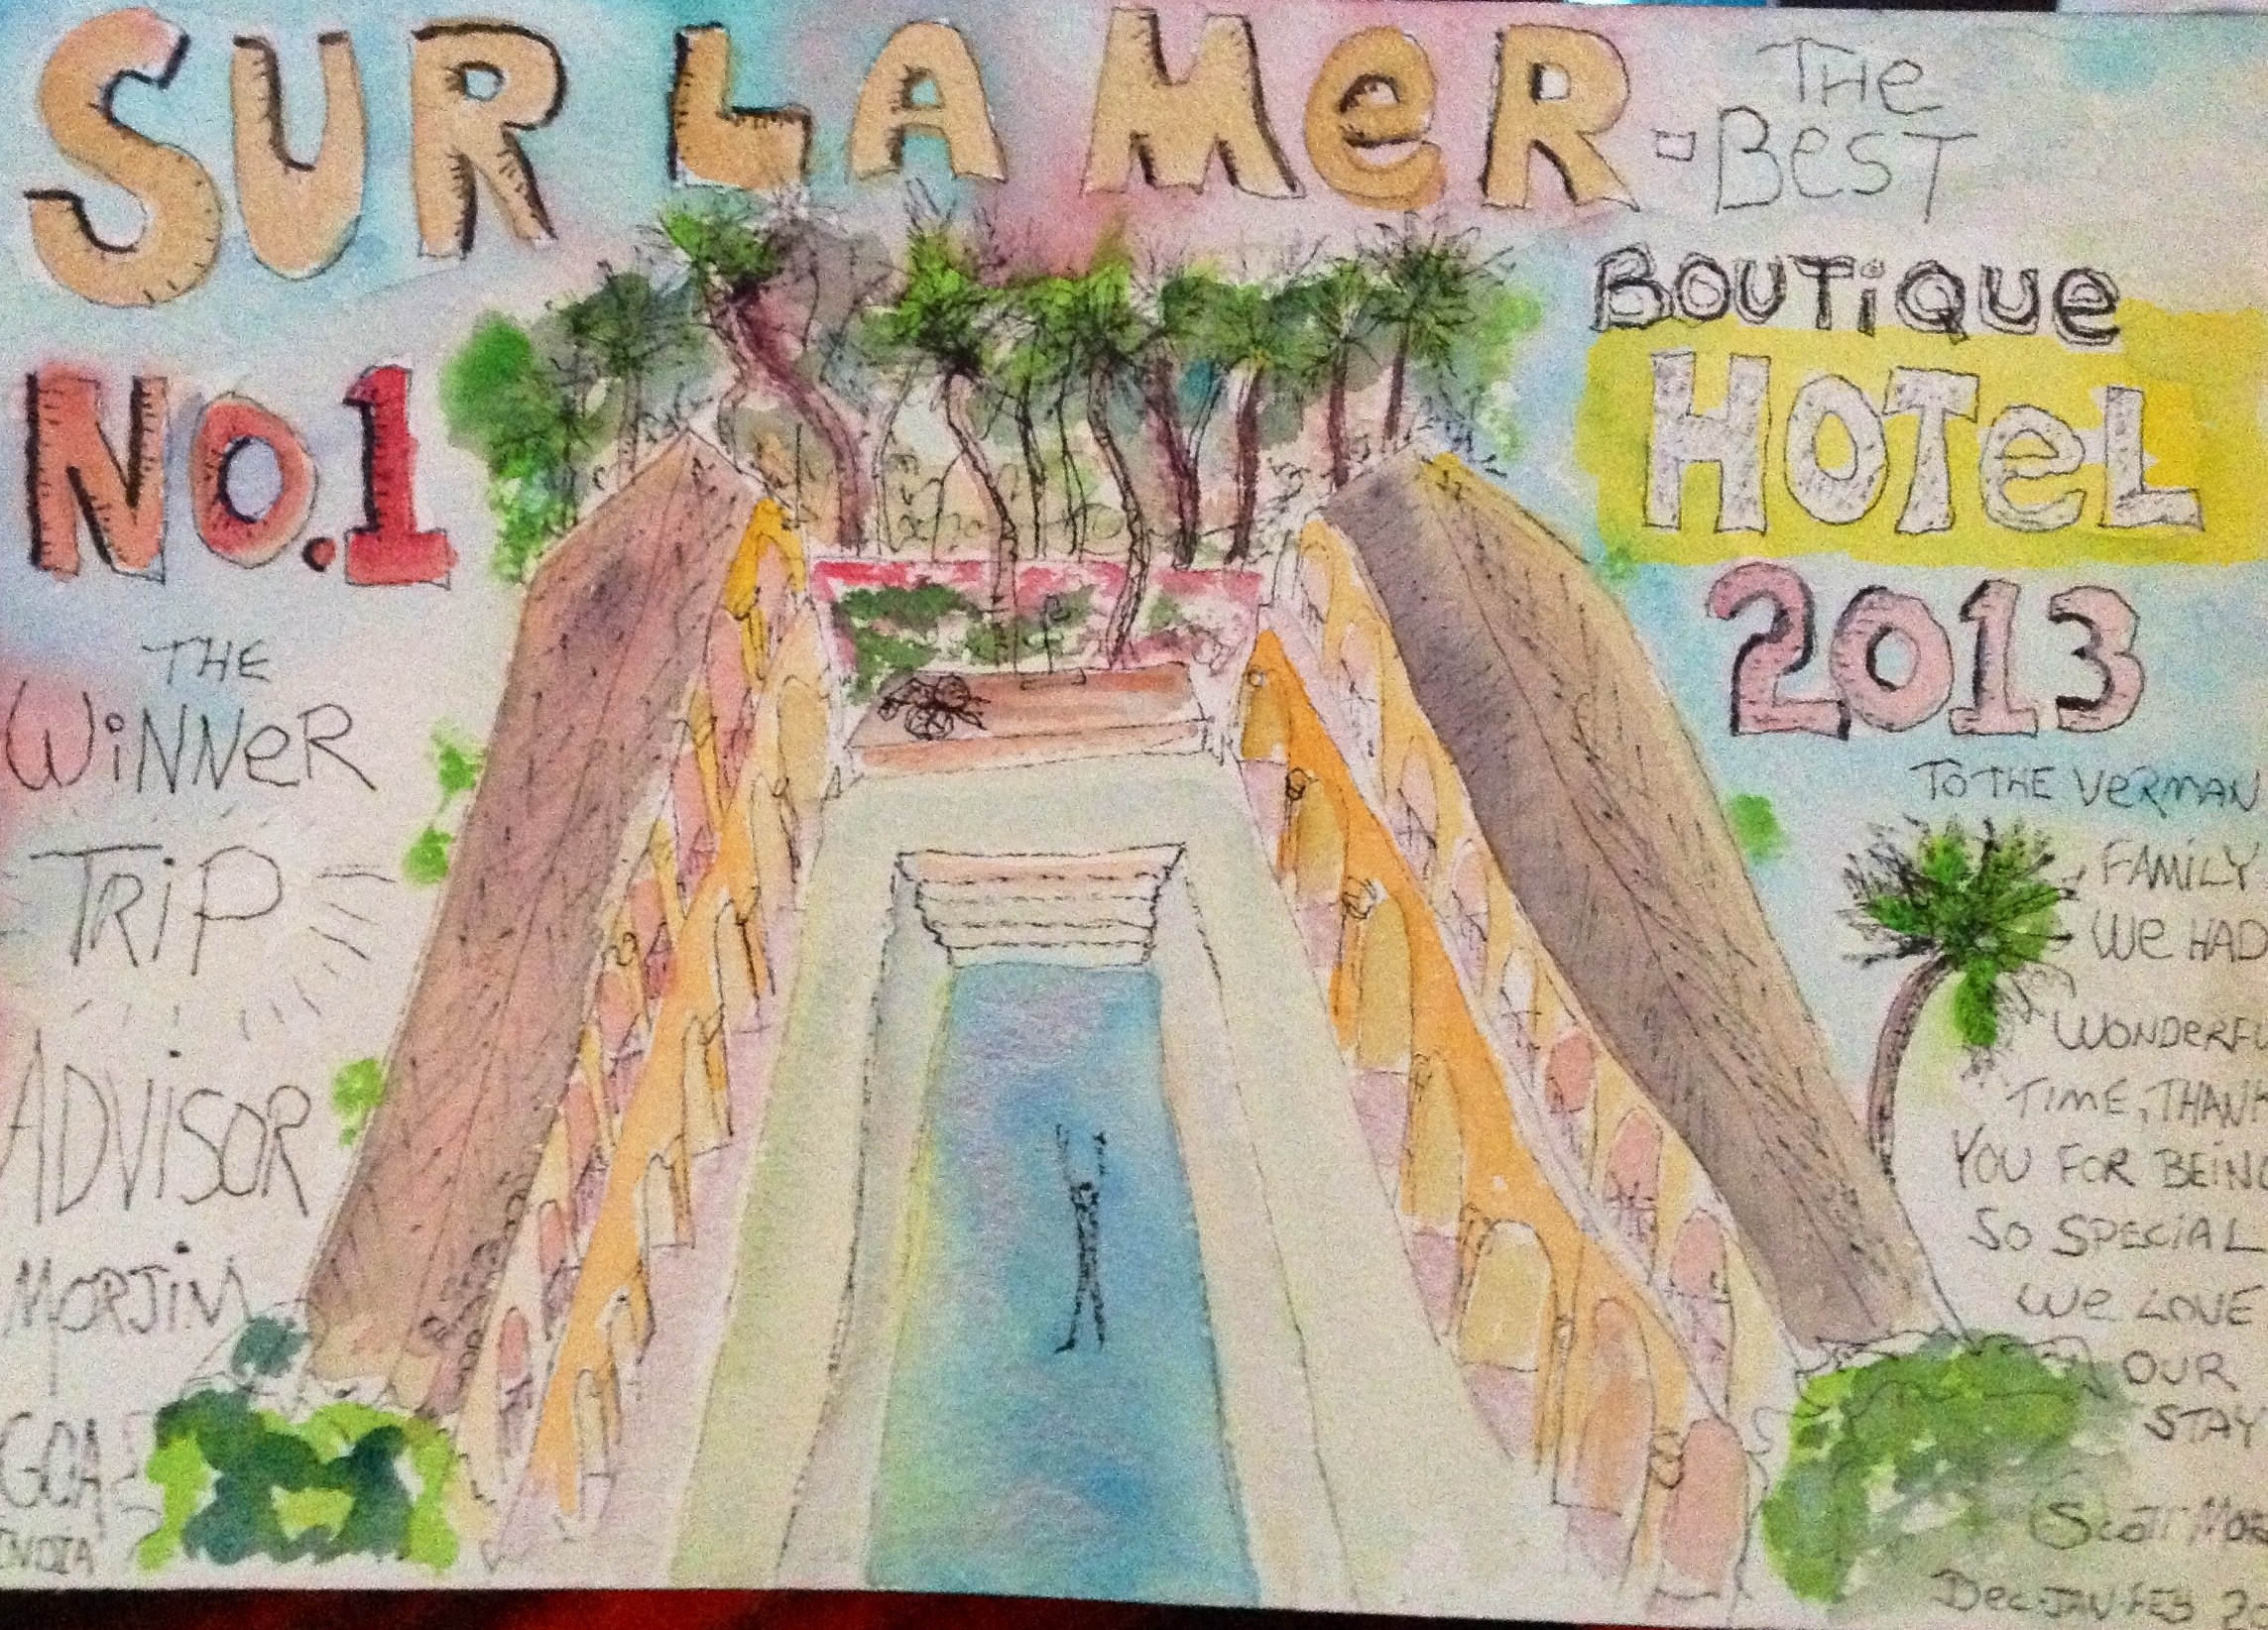 SUR LA MeR
THe
BeST
BOUTiQUe
HOTeL
2013
NO.1
THE
WiNNeR
TRiP
ADViSOR
MORJiM
GOA
INDIA
TO THE VeRMAN
FAMiLY
We HAD
TIME,
YOU FOR BEING
SO SPECIAL
We LOVE
OUR
STAY
Scott
Dec-JAN-FEB